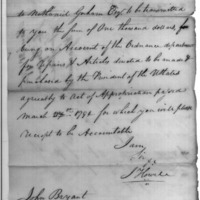 to Nathaniel Gorham Esqr to be transmitted
to you the sum of One thousand dollars, for
being on Account of the Ordnance department
for Repairs & Articles directed to be made &
purchased by the
agreeably to Act of Appropriation passed
March 1794 for which you will please
receipt to be Accountable
I am
J Howell
John Bryant